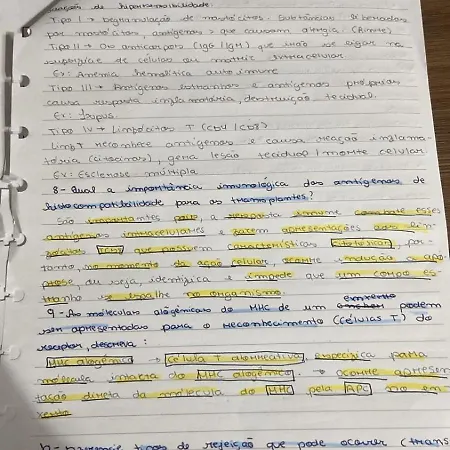 reações de hipersensibilidade.
Tipo I → Degranulação de mastócitos. Substâncias liberadas
por mastócitos, antígenos → que causam alergia (Rinite)
Tipo II → Os anticorpos (IgG/IgM) que irão se ligar na
superfície de células ou matriz extracelular
Ex: Anemia hemolítica autoimune
Tipo III → Antígenos estranhos e antígenos próprios
causa resposta inflamatória, destruição tecidual.
Ex: lúpus
Tipo IV → Linfócitos T (CD4/CD8)
Linf T reconhece antígenos e causa reação inflama-
tória (citocinas), gera lesão tecidual/morte celular
Ex: Esclerose múltipla
8- Qual a importância imunológica dos antígenos de
histocompatibilidade para os transplantes?
São importantes para, a resposta imune combate esses
antígenos intracelulares e fazem apresentações aos lin-
fócitos TCD8 que possuem características citotóxicas, por-
tanto, no momento da ação celular, ocorre indução a apo-
ptose, ou seja, identifica e impede que um corpo es-
tranho se espalhe no organismo.
9- As moléculas alogênicas do MHC de um enxerto podem
ser apresentadas para o reconhecimento (Células T) do
receptor, descreva:
MHC alogênico → Célula T alorreativa, específica para
molécula intacta do MHC alogênico. → ocorre apresen
tação direta da molécula do MHC pela APC no en-
xerto
tipos de rejeição que pode ocorrer (trans